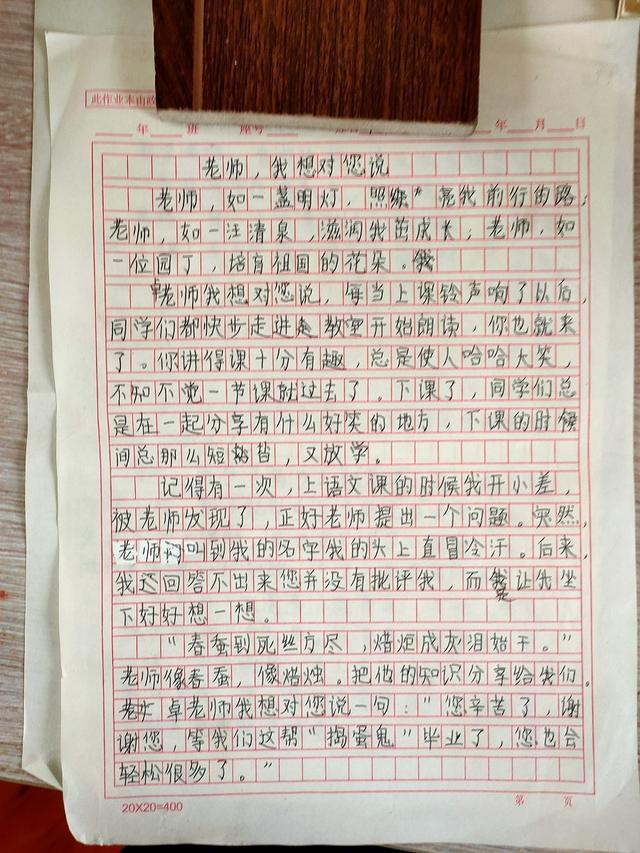 此作业本由政
年 班 座号 年 月 日
老师，我想对您说
老师，如一盏明灯，照亮我前行的路；
老师，如一汪清泉，滋润我茁成长；老师，如
一位园丁，培育祖国的花朵。我
卓老师我想对您说，每当上课铃声响了以后，
同学们都快步走进教室开始朗读，你也就来
了。你讲得课十分有趣，总是使人哈哈大笑，
不知不觉一节课就过去了。下课了，同学们总
是在一起分享有什么好笑的地方，下课的时候
间总那么短暂，又放学。
记得有一次，上语文课的时候我开小差，
被老师发现了，正好老师提出一个问题。突然，
老师叫到我的名字我的头上直冒冷汗。后来，
我还回答不出来您并没有批评我，而是让我坐
下好好想一想。
“春蚕到死丝方尽，蜡炬成灰泪始干。”
老师像春蚕，像蜡烛。把他的知识分享给我们。
卓老师我想对您说一句：“您辛苦了，谢
谢您，等我们这帮“捣蛋鬼”毕业了，您也会
轻松很多了。”
20X20=400
第 页